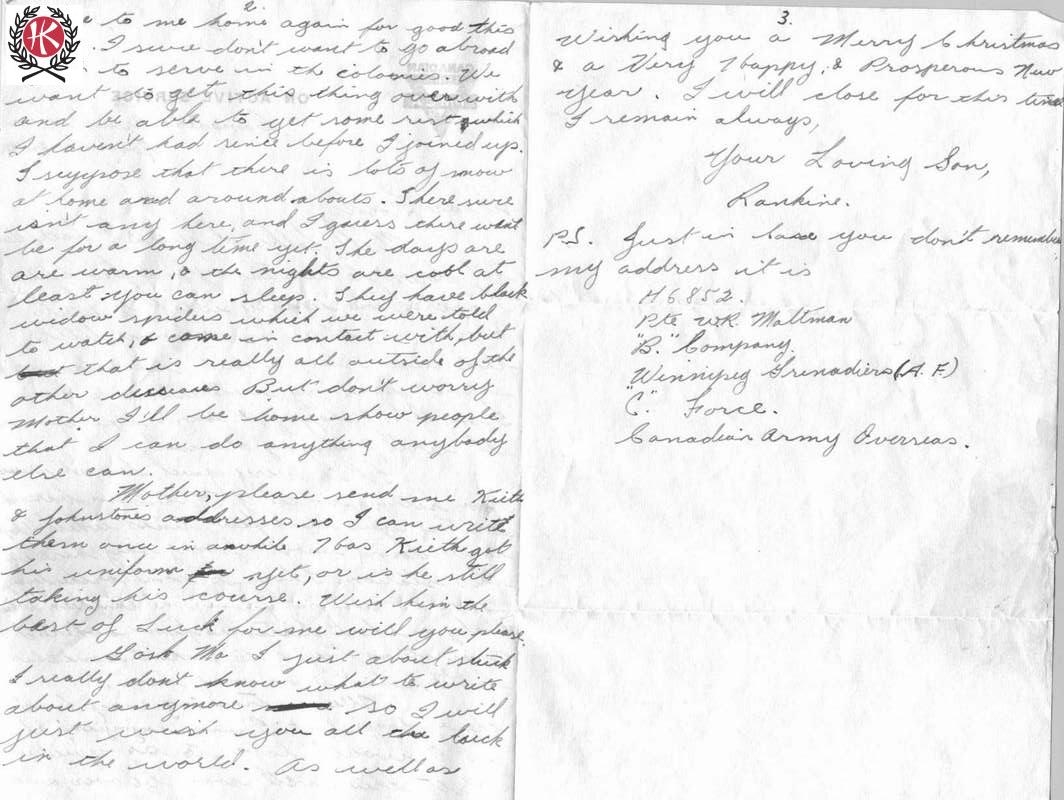 HK
2.
to me home again for good this
. I sure don't want to go abroad
to serve in the colonies. We
want to get this thing over with
and be able to get some rest, which
I haven't had since before I joined up.
I suppose that there is lots of snow
at home and around abouts. There sure
isn't any here, and I guess there won't
be for a long time yet. The days are
are warm, & the nights are cool at
least you can sleep. They have black
widow spiders which we were told
to watch, & come in contact with, but
that is really all outside of the
other diseases But don't worry
Mother I'll be home show people
that I can do anything anybody
else can.
Mother, please send me Kieth
& Johnstones addresses so I can write
them once in awhile Has Kieth got
his uniform yet, or is he still
taking his course. Wish him the
best of Luck for me will you please.
Gosh Ma I just about stuck
I really dont know what to write
about anymore so I will
just wish you all the luck
in the world. As well as
3.
Wishing you a Merry Christmas
& a Very Happy, & Prosperous New
Year. I will close for this time
I remain always,
Your Loving Son,
Rankine.
P.S. Just in case you don't remember
my address it is
H6852.
Pte W.R. Maltman
"B." Company
Winnipeg Grenadiers (A.F.)
"C." Force.
Canadian Army Overseas.